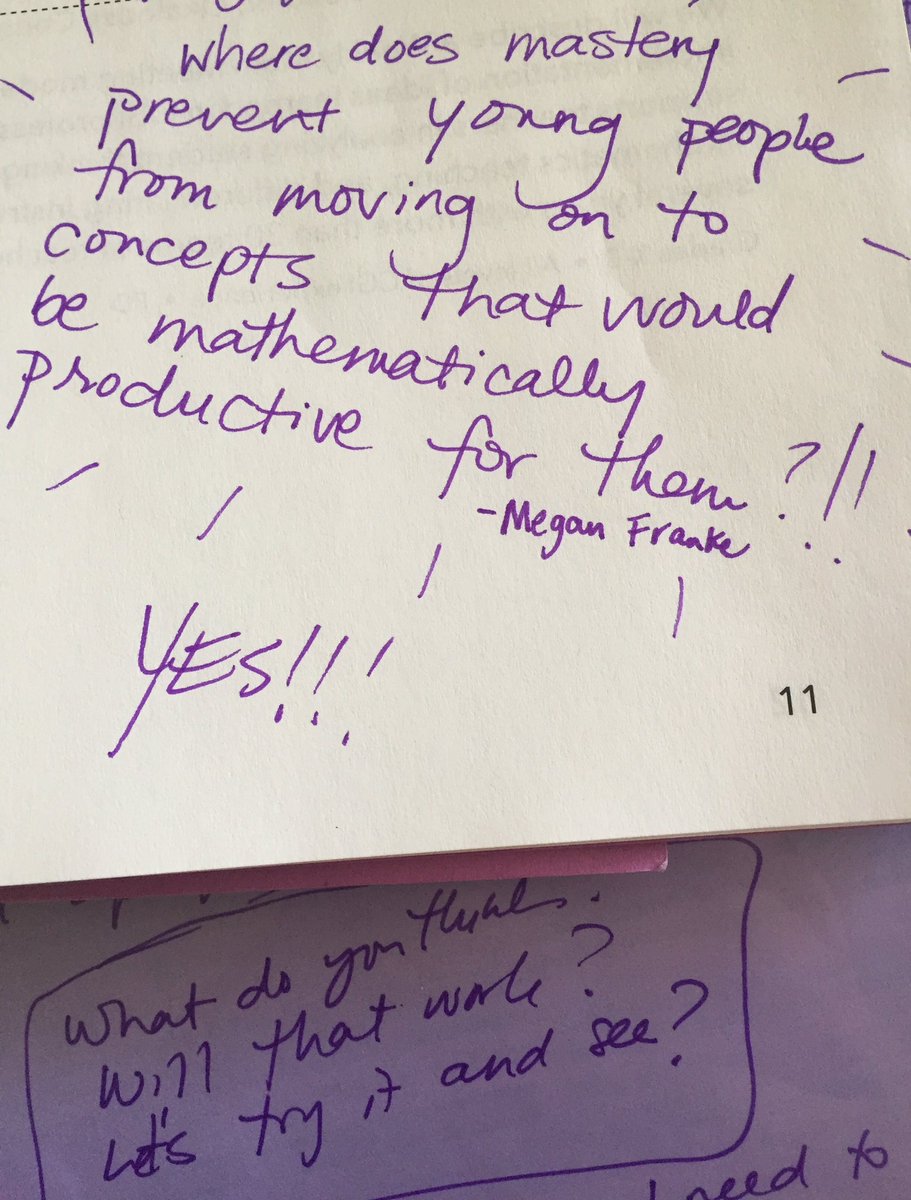 where does mastery
prevent young people
from moving on to
concepts that would
be mathematically
productive for them?!!
-Megan Franke
YES!!!
11
What do you think.
Will that work?
Let's try it and see?
need to